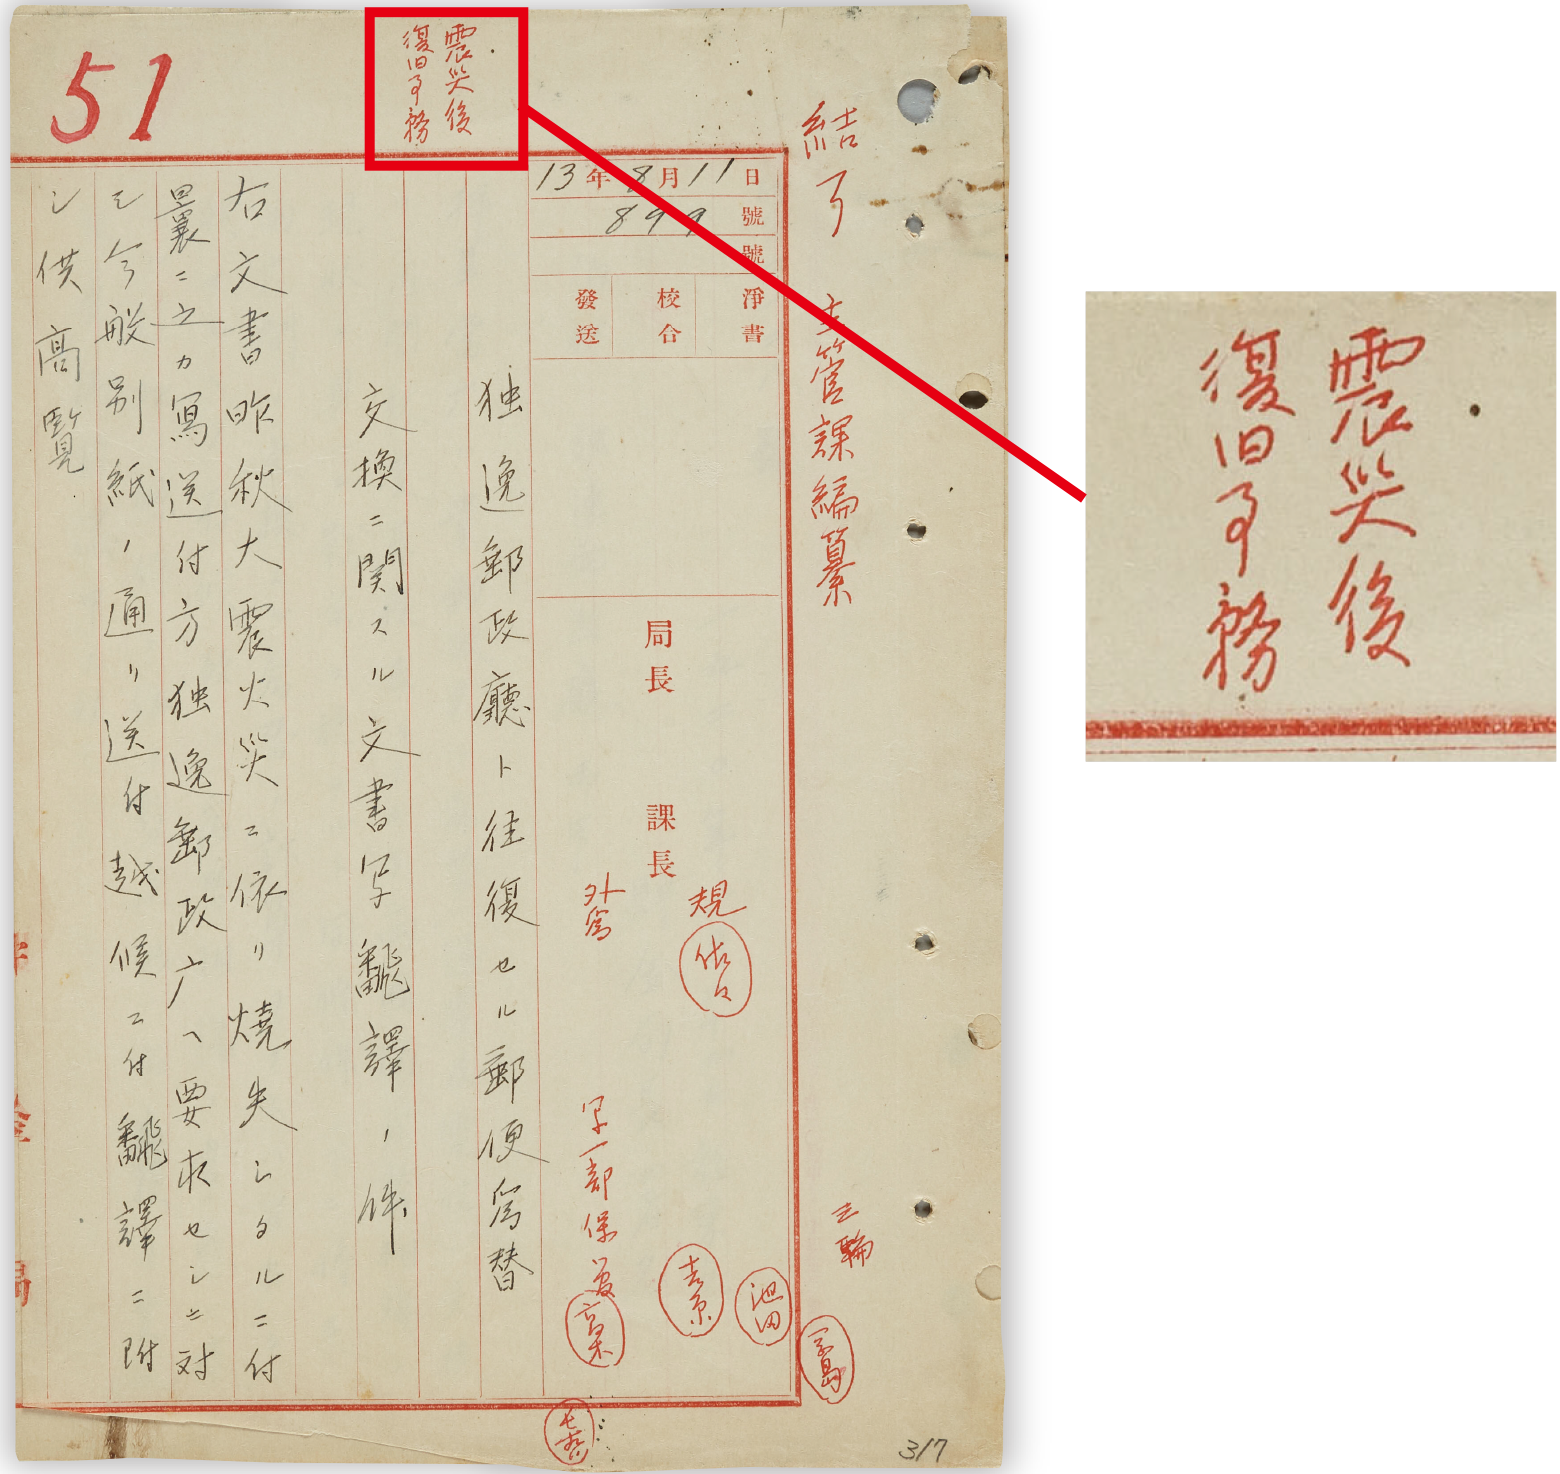 51
震災後
復旧事務
結了
主管課編纂
三輪
13年8月11日
899號
號
淨書
校合
發送
局長
課長
規
佐々
外為
写一部保管
池田
高島
独逸郵政廳ト往復セル郵便為替
交換ニ関スル文書写飜譯ノ件
右文書昨秋大震火災ニ依リ燒失シタルニ付
曩ニ之カ寫送付方独逸郵政广ヘ要求セシニ対
シ今般別紙ノ通リ送付越候ニ付飜譯ニ附
シ供高覽
317
震災後
復旧事務